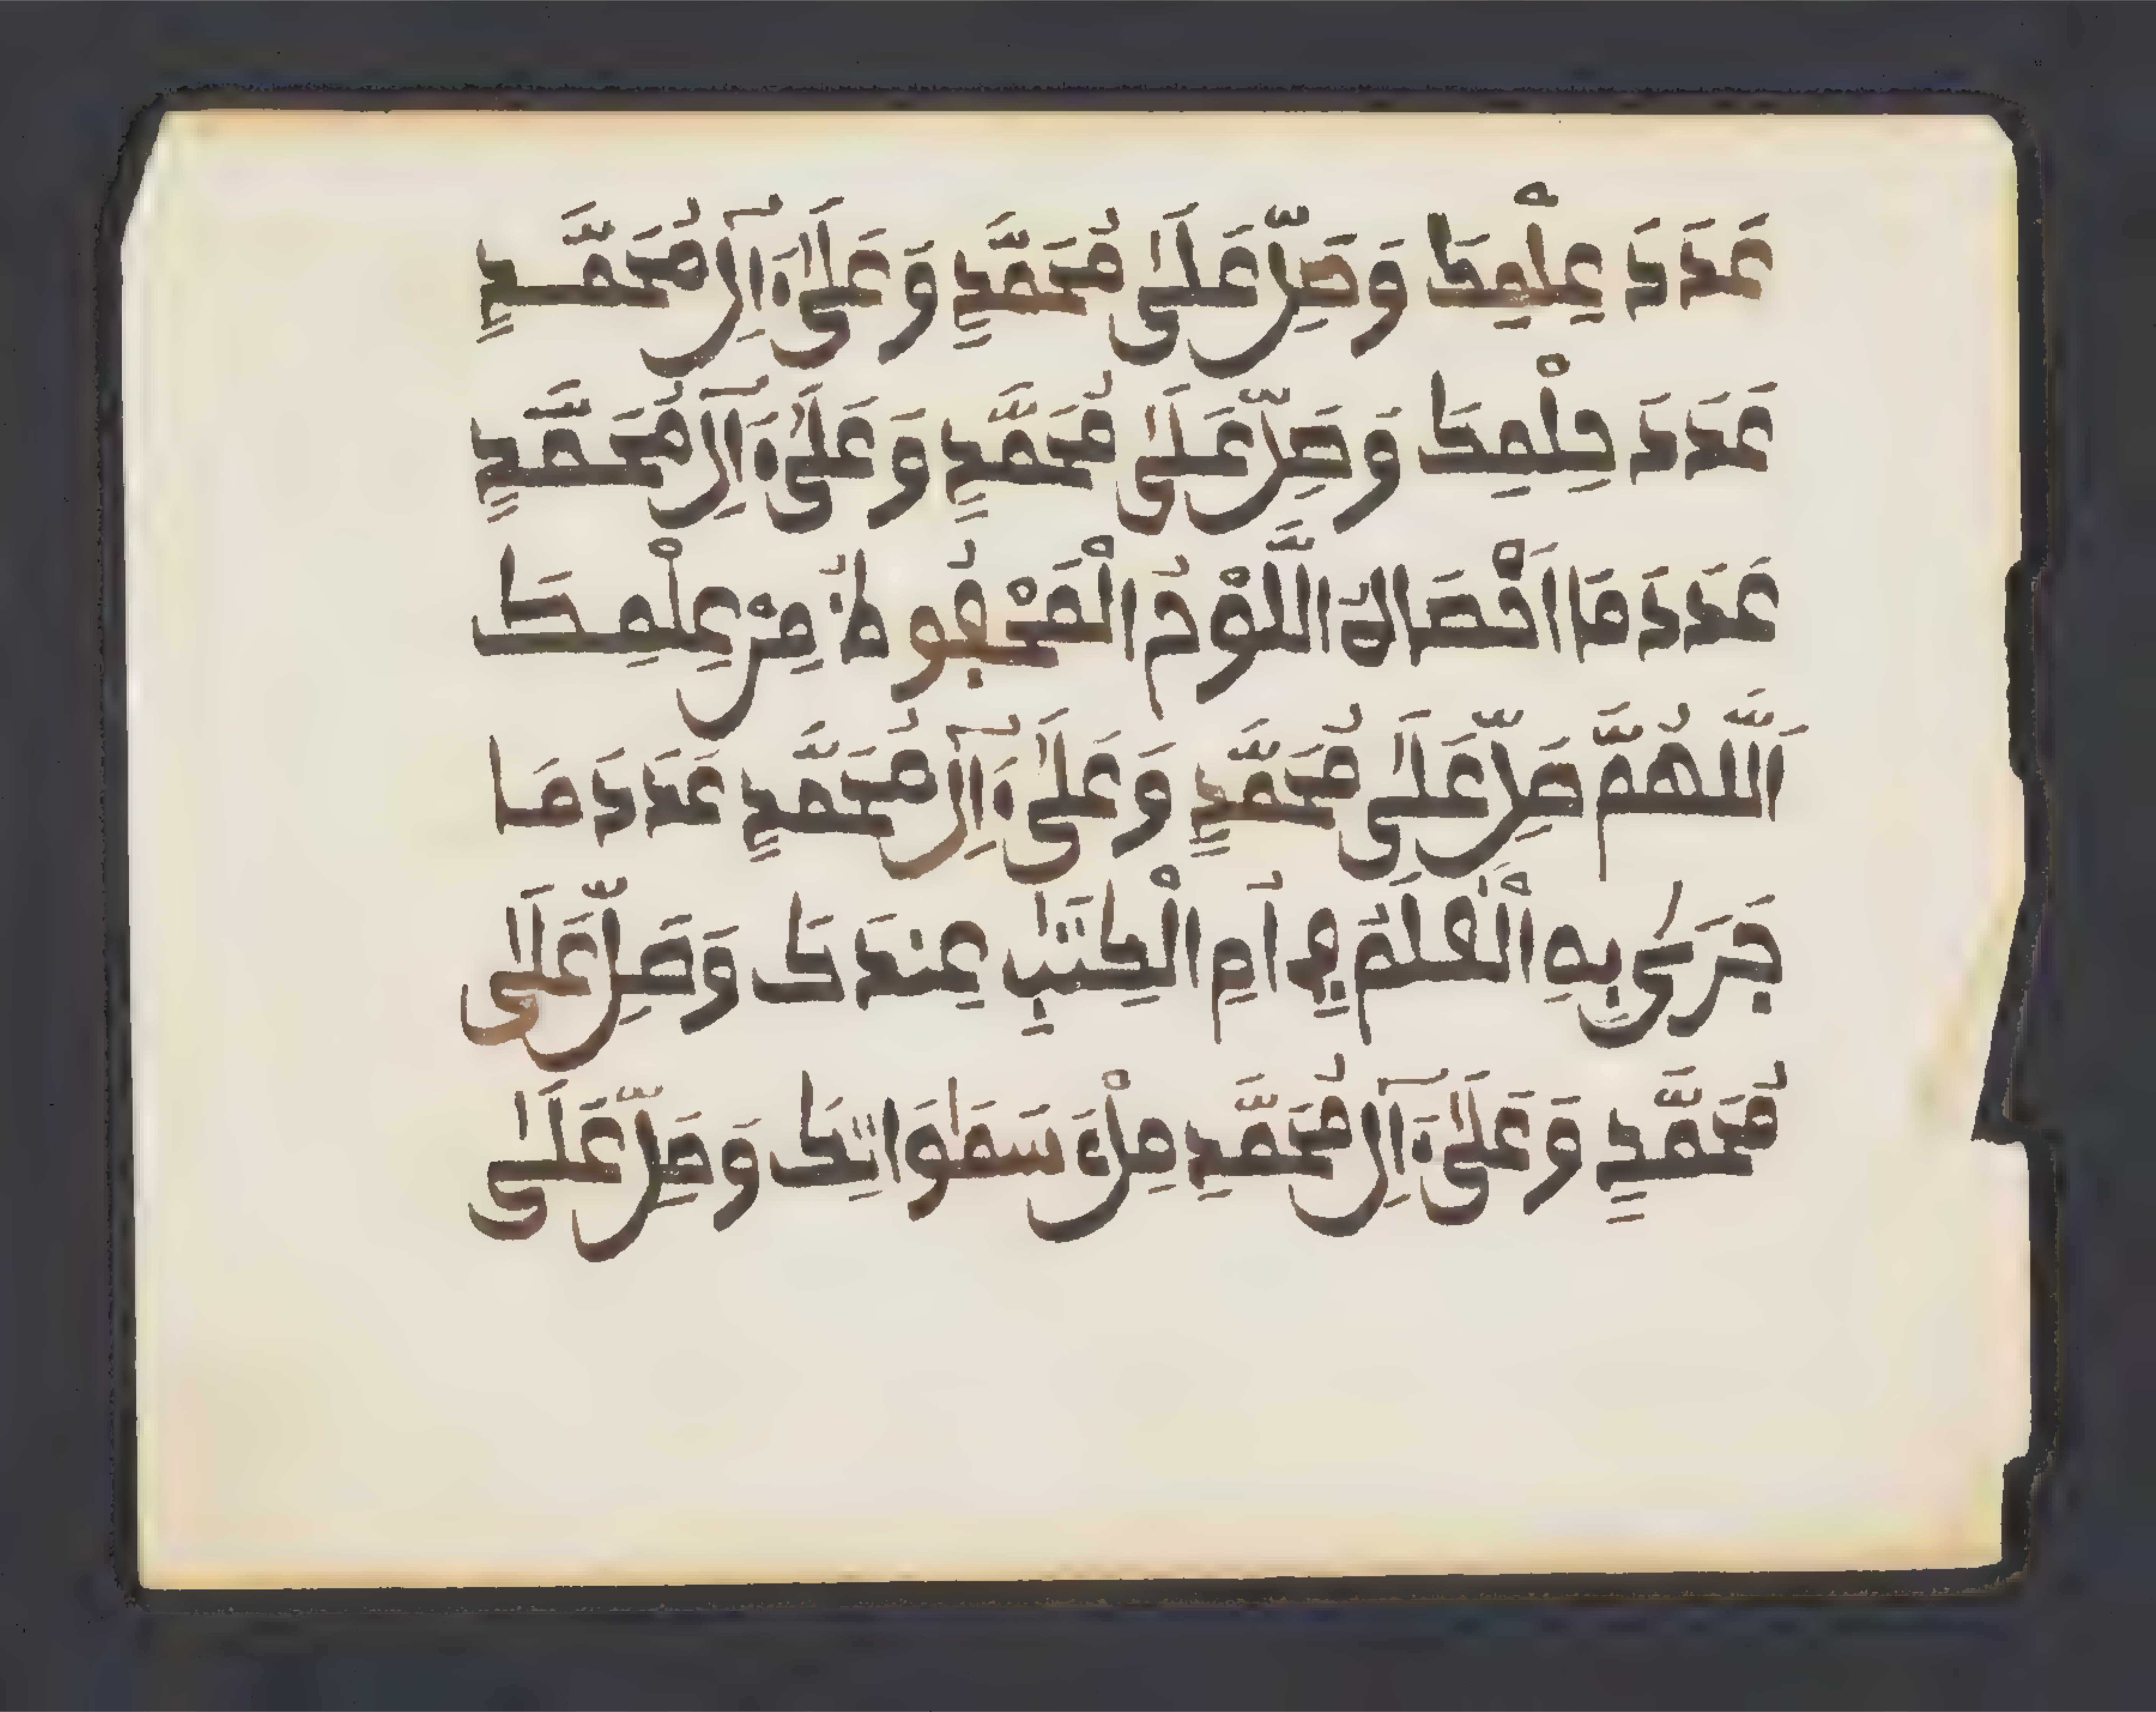 عَدَدَ عِلْمِكَ وَصَلِّ عَلَىٰ مُحَمَّدٍ وَعَلَىٰٓ ءَالِ مُحَمَّدٍ
عَدَدَ حِلْمِكَ وَصَلِّ عَلَىٰ مُحَمَّدٍ وَعَلَىٰٓ ءَالِ مُحَمَّدٍ
عَدَدَ مَا اَحْصَاهُ اللَّوْحُ الْمَحْفُوظُ مِنْ عِلْمِكَ
اَللَّهُمَّ صَلِّ عَلَىٰ مُحَمَّدٍ وَعَلَىٰٓ ءَالِ مُحَمَّدٍ عَدَدَ مَا
جَرَىٰ بِهِ الْقَلَمُ فِي أُمِ الْكِتَٰبِ عِندَكَ وَصَلِّ عَلَىٰ
مُحَمَّدٍ وَعَلَىٰٓ ءَالِ مُحَمَّدٍ مِلْءَ سَمَٰوَاتِكَ وَصَلِّ عَلَىٰ